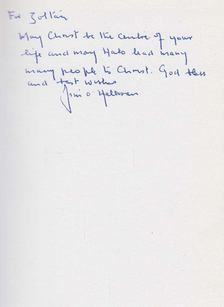 For Zoltán
May Christ be the centre of your
life and may Halo lead many
many people to Christ. God bless
and best wishes
Jim O'Halloran